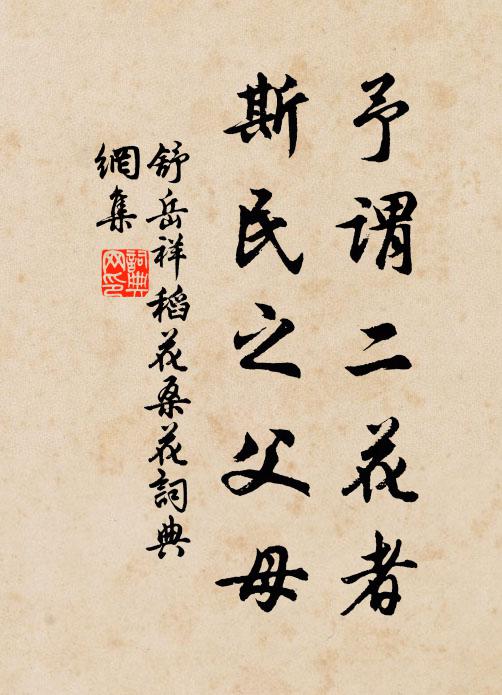 予謂二花者
斯民之父母
舒岳祥稻花桑花詞典
網集
詞典
网印